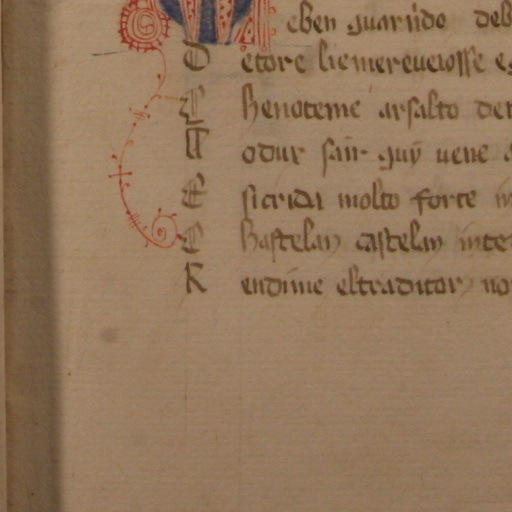 eben guarido deb
D etore li emereueiosse e
C henoteme arsalto de
N odux san guy uene
E sicrida molto forte
C hastelan castelan inte
R endime el traditor no